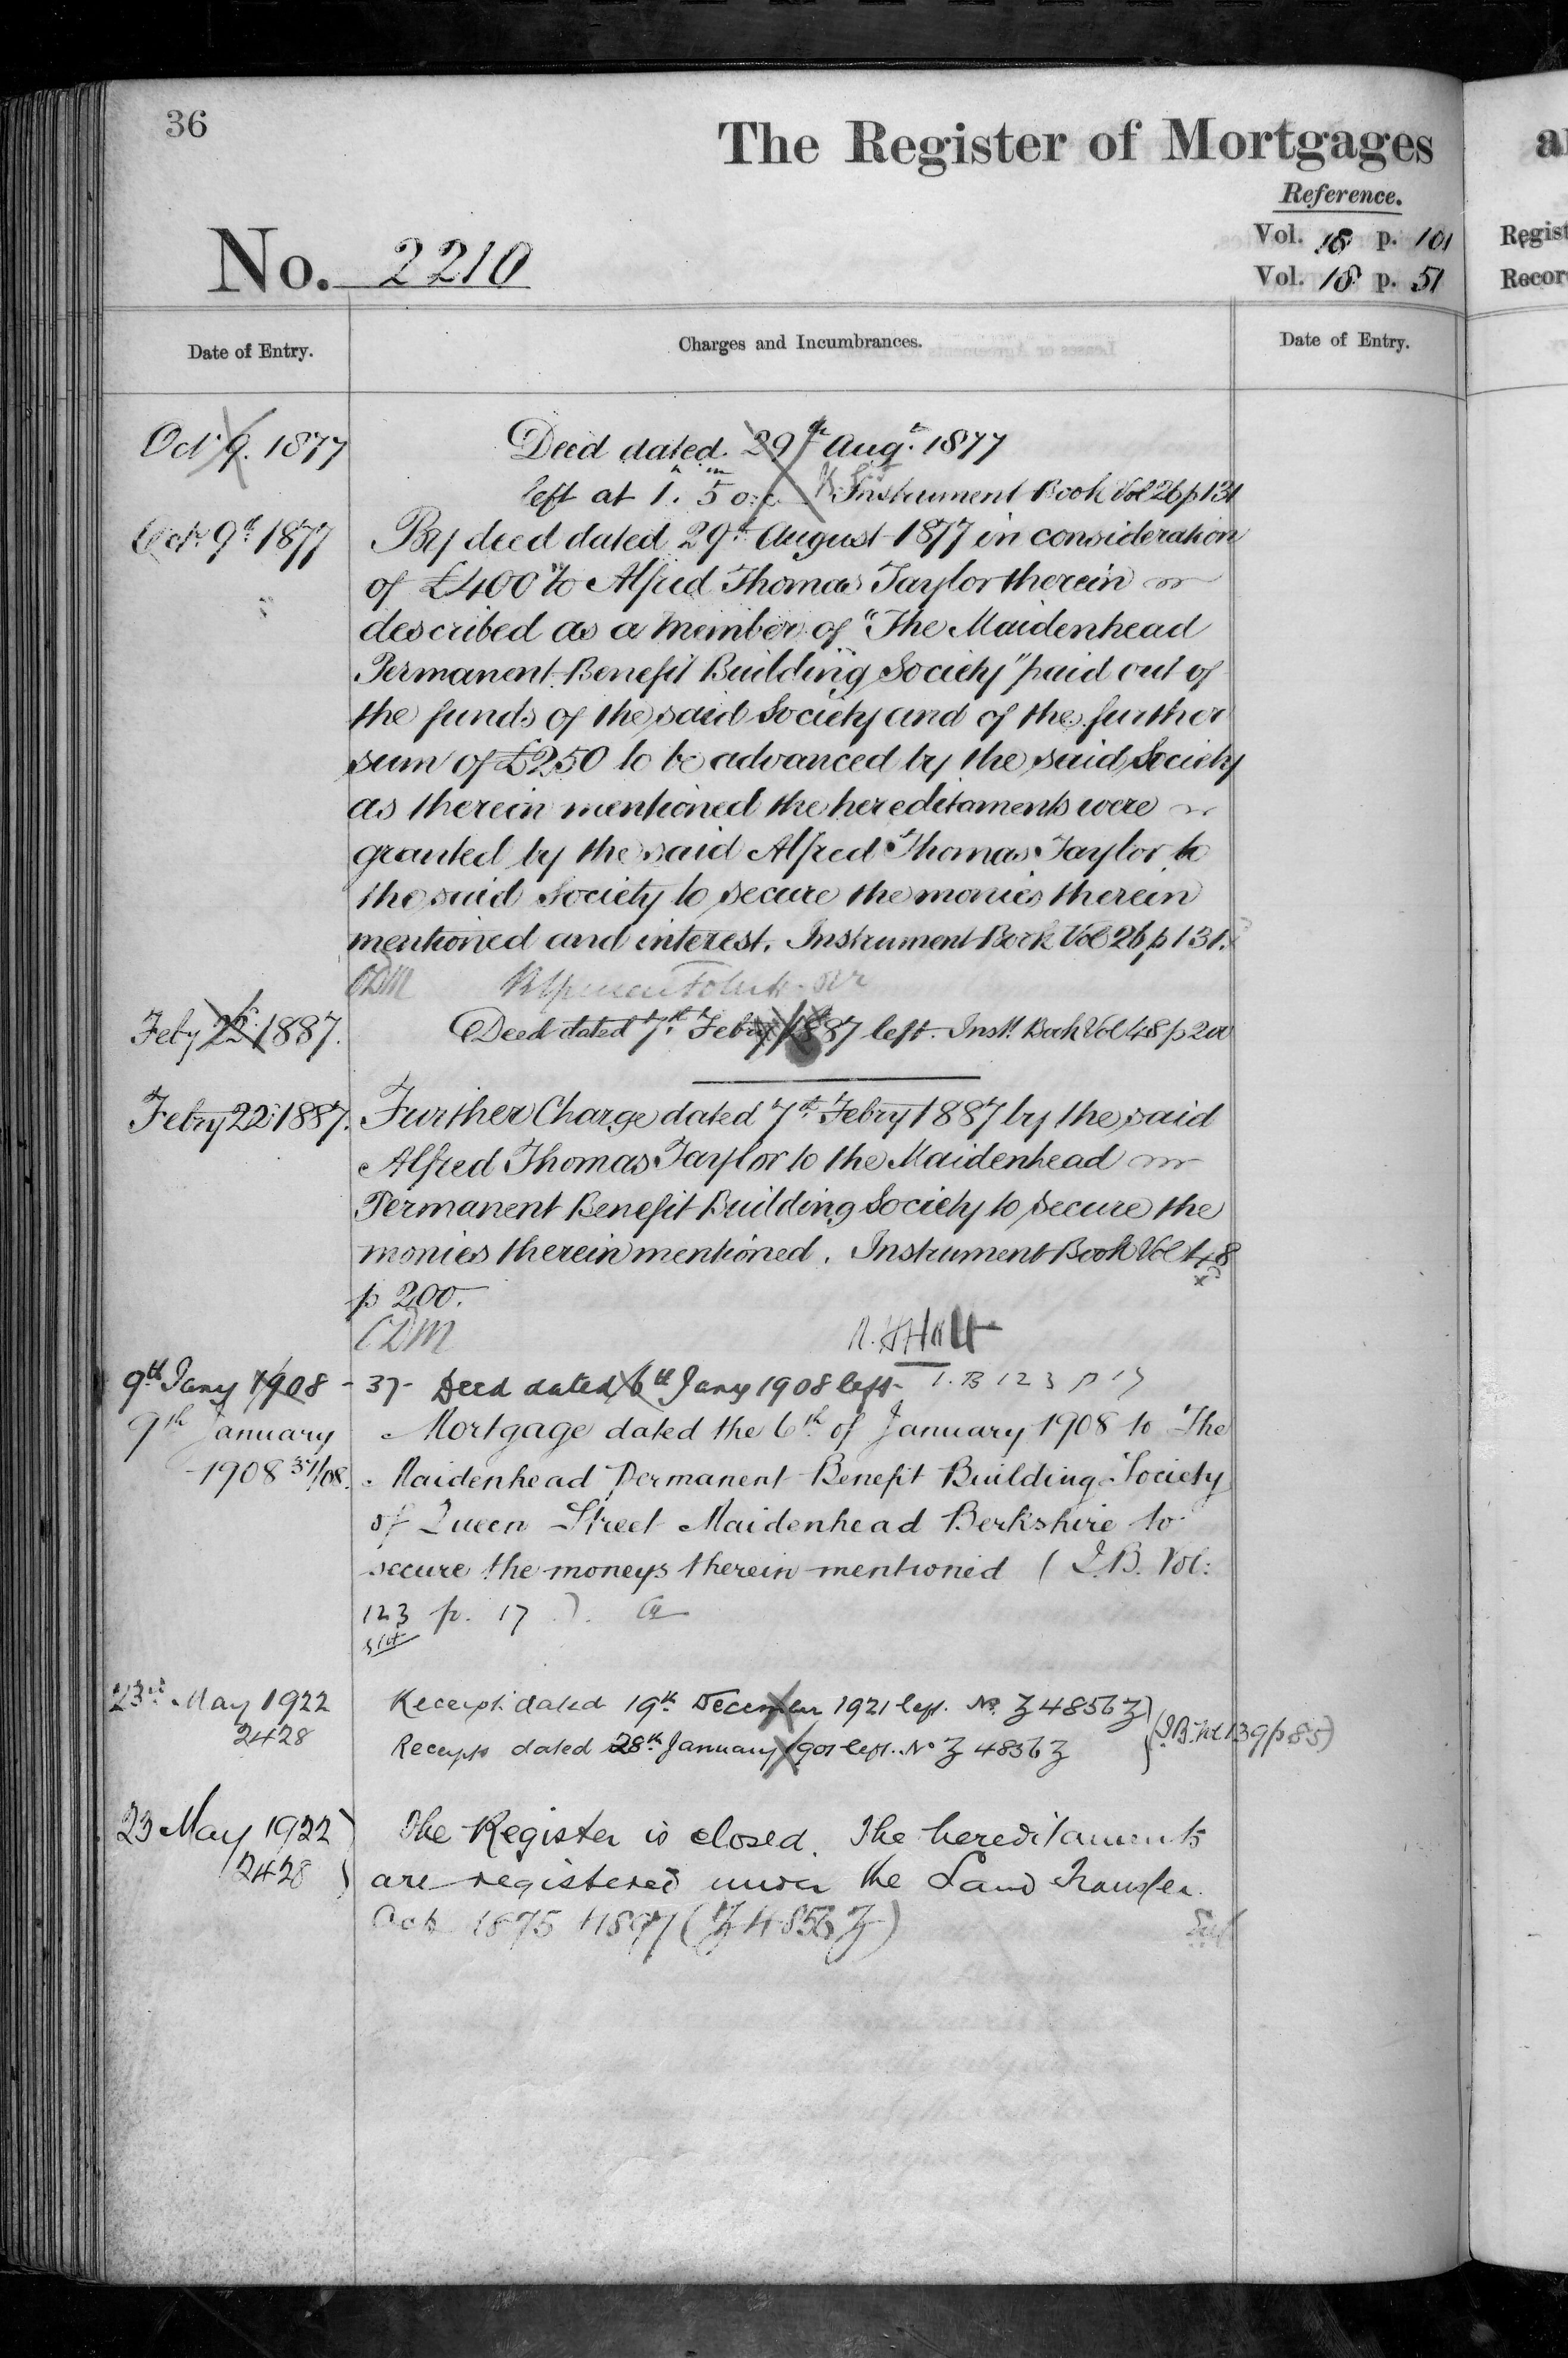 36
The Register of Mortgages
Reference.
Vol. 18 p. 101
No. 2210
Vol. 18 p. 51
Regist
Recor
Date of Entry.
Charges and Incumbrances.
Date of Entry.
Oct 9. 1877
Deed dated 29th Augt. 1877
left at 1h. 5m Instrument Book Vol 26 p 131
Octr. 9th 1877
By deed dated 29th August 1877 in consideration
of £400 to Alfred Thomas Taylor therein
described as a Member of "The Maidenhead
Permanent Benefit Building Society" paid out of
the funds of the said Society and of the further
sum of £250 to be advanced by the said Society
as therein mentioned the hereditaments were
granted by the said Alfred Thomas Taylor to
the said Society to secure the monies therein
mentioned and interest. Instrument Book Vol 26 p 131.
CDM
Feby 22 1887.
Deed dated 7th Feby 1887 left. Inst. Book Vol 48 p 200
Febry 22 1887.
Further Charge dated 7th Febry 1887 by the said
Alfred Thomas Taylor to the Maidenhead
Permanent Benefit Building Society to secure the
monies therein mentioned. Instrument Book Vol 48
p 200.
CDM
Holt
9th Jany 1908 - 37 -
Deed dated 6th Jany 1908 left - I.B 123 p 17
9th January
1908 37/08.
Mortgage dated the 6th of January 1908 to The
Maidenhead Permanent Benefit Building Society
of Queen Street Maidenhead Berkshire to
secure the moneys therein mentioned (I.B. Vol:
123 p. 17).
23rd May 1922
2428
Receipt dated 19th December 1921 left. No. Z 4856 Z
Receipts dated 28th January 1901 left. No Z 4856 Z
(I.B. Vol 139 p 85)
23 May 1922
2428
The Register is closed. The hereditaments
are registered under the Land Transfer
Acts 1875 & 1897 (Z 4856 Z)